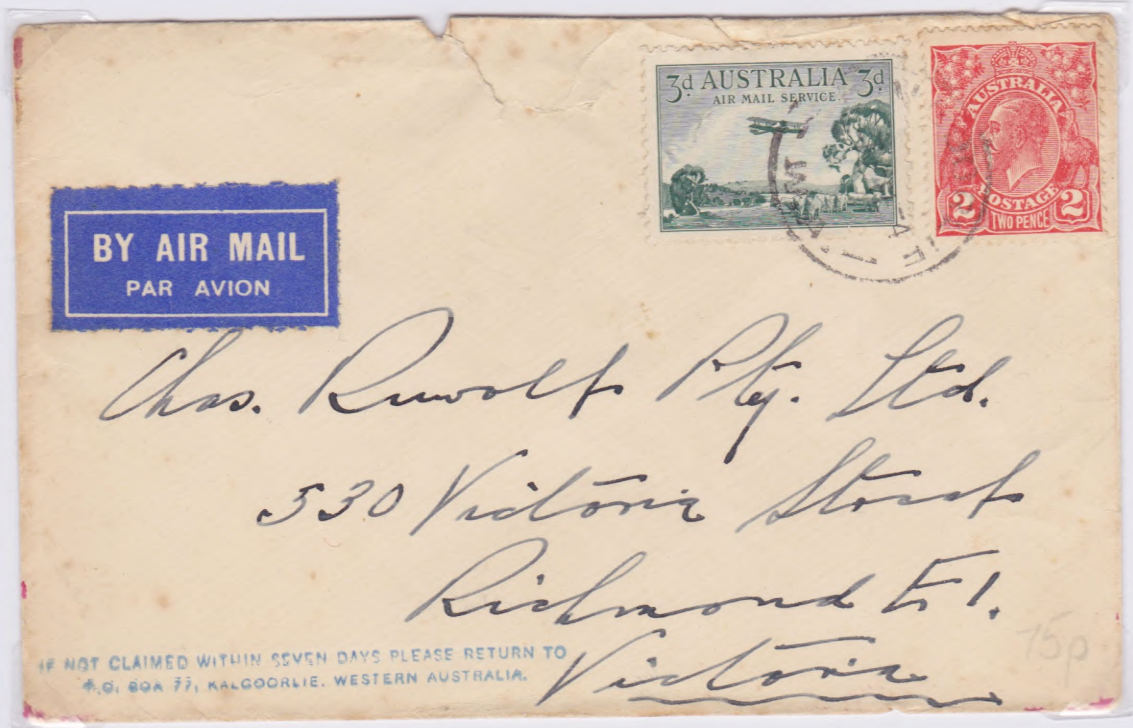 3d AUSTRALIA 3d
AIR MAIL SERVICE
AUSTRALIA
POSTAGE
2 TWO PENCE 2
BY AIR MAIL
PAR AVION
Chas. Ruwolf Pty. Ltd.
530 Victoria Street
Richmond E1.
Victoria
IF NOT CLAIMED WITHIN SEVEN DAYS PLEASE RETURN TO
P.O. BOX 77, KALGOORLIE. WESTERN AUSTRALIA.
75p